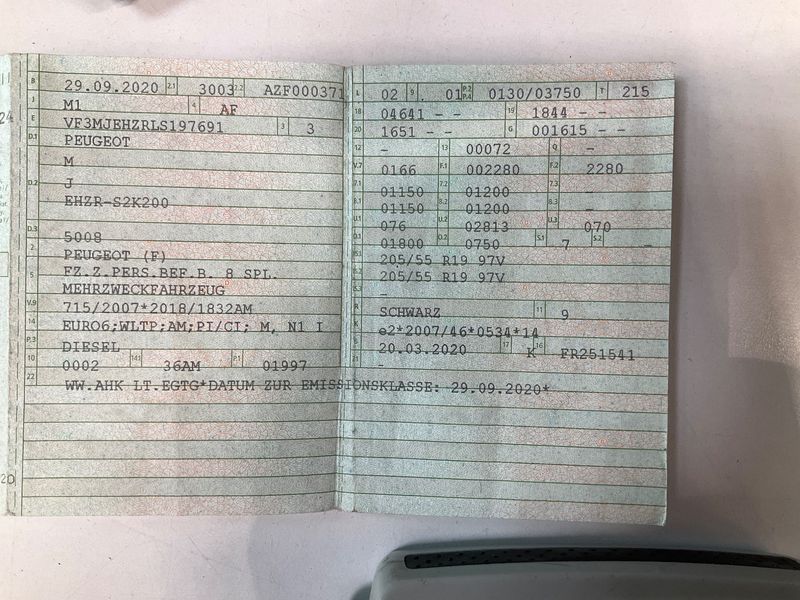 B 29.09.2020 2.1 3003 2.2 AZF000371
J M1 4 AF
E VF3MJEHZRLS197691 3 3
D.1 PEUGEOT
M
D.2 J
EHZR-S2K200
D.3 5008
2 PEUGEOT (F)
5 FZ.Z.PERS.BEF.B. 8 SPL.
MEHRZWECKFAHRZEUG
V.9 715/2007*2018/1832AM
14 EURO6;WLTP;AM;PI/CI; M, N1 I
P.3 DIESEL
10 0002 14.1 36AM P.1 01997
22 WW.AHK LT.EGTG*DATUM ZUR EMISSIONSKLASSE: 29.09.2020*
L 02 9 . 01 P.2 P.4 0130/03750 T 215
18 04641 - - 19 1844 - -
20 1651 - - G 001615 - -
12 - 13 00072 Q -
V.7 0166 F.1 002280 F.2 2280
7.1 01150 7.2 01200 7.3 -
8.1 01150 8.2 01200 8.3 -
U.1 076 U.2 02813 U.3 070
O.1 01800 O.2 0750 S.1 7 S.2 -
15.1 205/55 R19 97V
15.2 205/55 R19 97V
-
R SCHWARZ 11 9
K e2*2007/46*0534*14
6 20.03.2020 17 K 16 FR251541
21 -
24
20